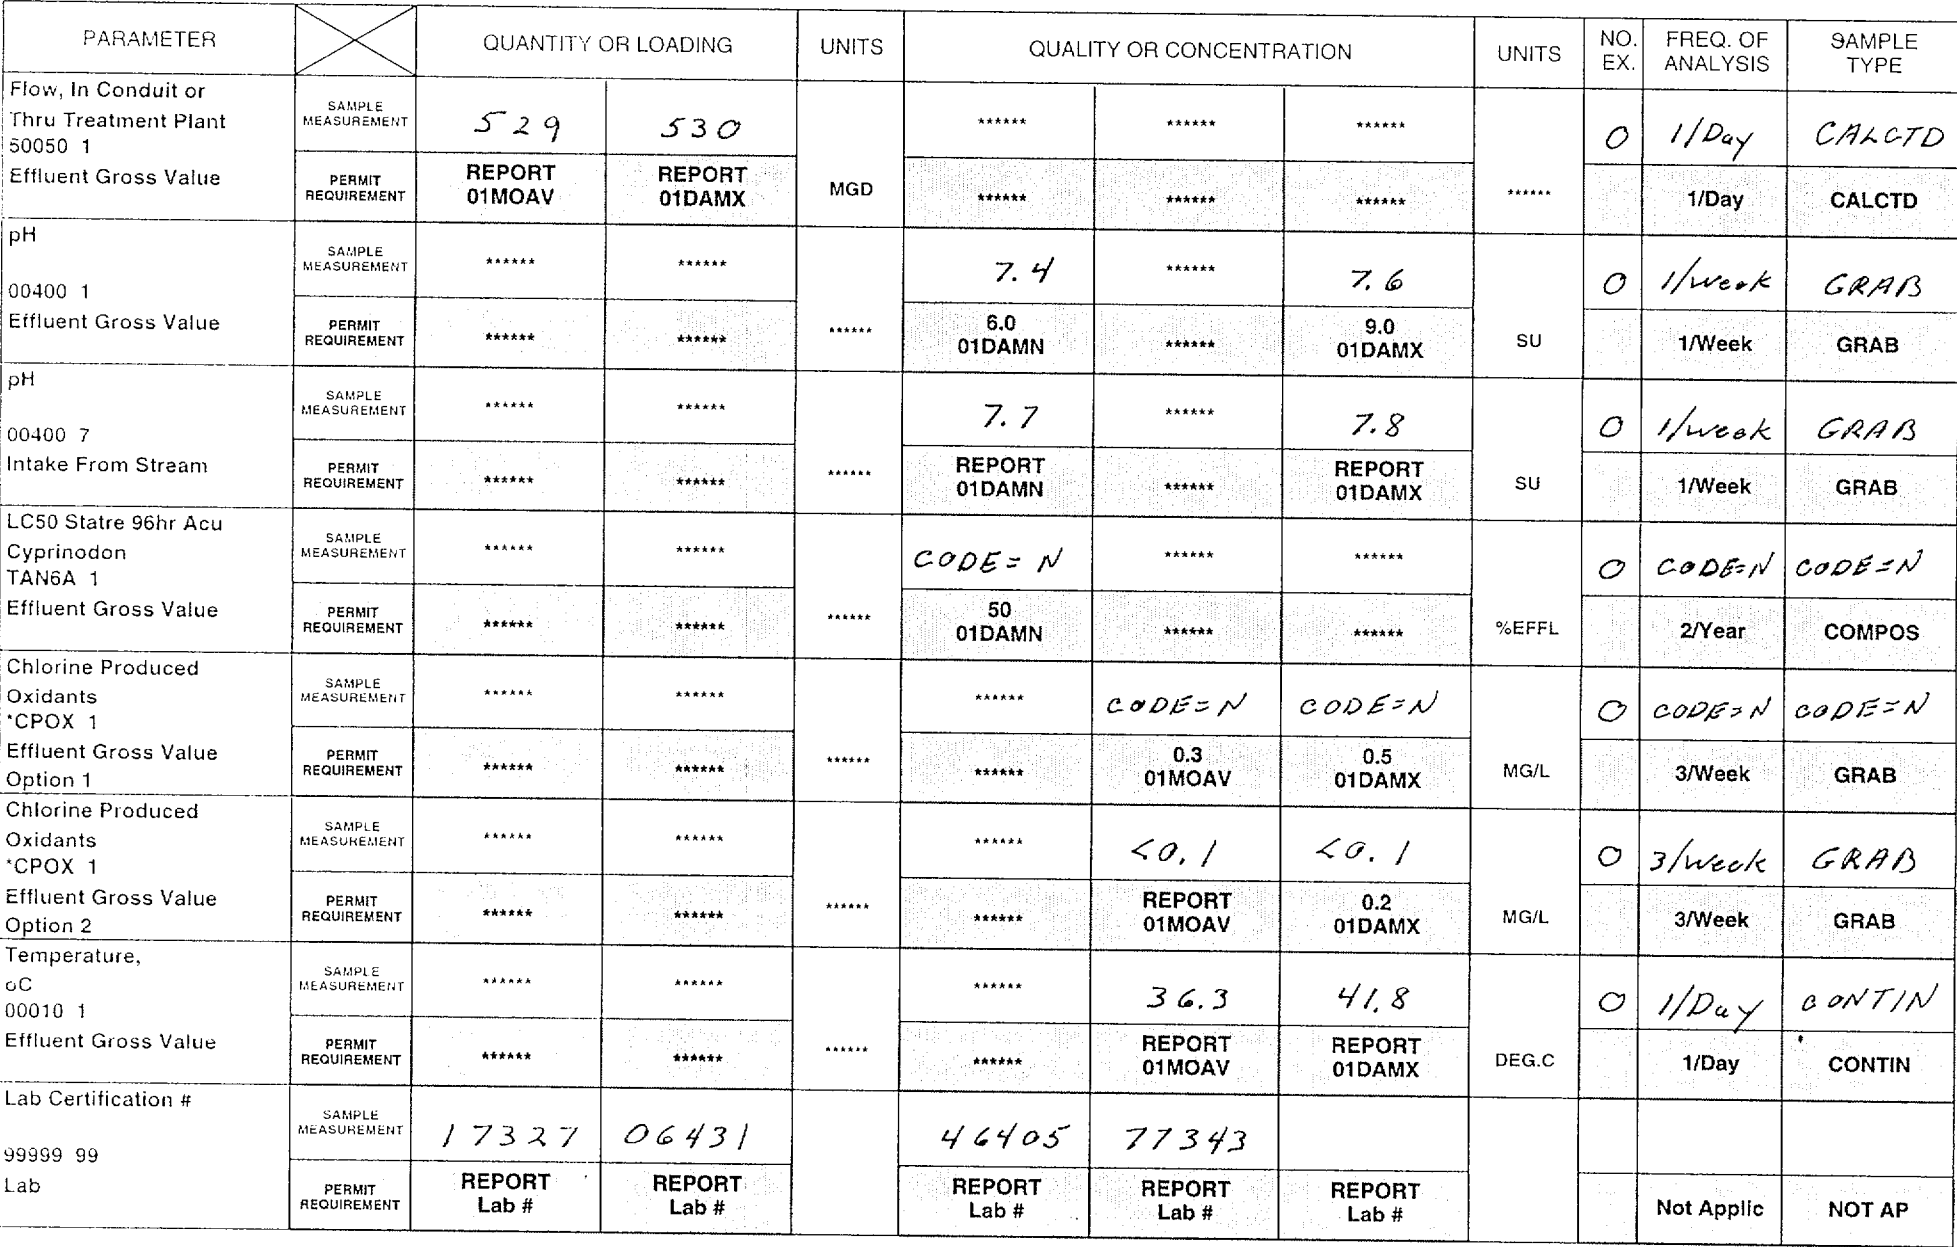 PARAMETER QUANTITY OR LOADING UNITS QUALITY OR CONCENTRATION UNITS NO. EX. FREQ. OF ANALYSIS SAMPLE TYPE
Flow, In Conduit or
Thru Treatment Plant
50050 1
Effluent Gross Value
SAMPLE MEASUREMENT 529 530 ****** ****** ****** 0 1/Day CALCTD
PERMIT REQUIREMENT REPORT 01MOAV REPORT 01DAMX MGD ****** ****** ****** ****** 1/Day CALCTD
pH
00400 1
Effluent Gross Value
SAMPLE MEASUREMENT ****** ****** 7.4 ****** 7.6 0 1/week GRAB
PERMIT REQUIREMENT ****** ****** ****** 6.0 01DAMN ****** 9.0 01DAMX SU 1/Week GRAB
pH
00400 7
Intake From Stream
SAMPLE MEASUREMENT ****** ****** 7.7 ****** 7.8 0 1/week GRAB
PERMIT REQUIREMENT ****** ****** ****** REPORT 01DAMN ****** REPORT 01DAMX SU 1/Week GRAB
LC50 Statre 96hr Acu
Cyprinodon
TAN6A 1
Effluent Gross Value
SAMPLE MEASUREMENT ****** ****** CODE=N ****** ****** 0 CODE=N CODE=N
PERMIT REQUIREMENT ****** ****** ****** 50 01DAMN ****** ****** %EFFL 2/Year COMPOS
Chlorine Produced
Oxidants
*CPOX 1
Effluent Gross Value
Option 1
SAMPLE MEASUREMENT ****** ****** ****** CODE=N CODE=N 0 CODE=N CODE=N
PERMIT REQUIREMENT ****** ****** ****** ****** 0.3 01MOAV 0.5 01DAMX MG/L 3/Week GRAB
Chlorine Produced
Oxidants
*CPOX 1
Effluent Gross Value
Option 2
SAMPLE MEASUREMENT ****** ****** ****** <0.1 <0.1 0 3/week GRAB
PERMIT REQUIREMENT ****** ****** ****** ****** REPORT 01MOAV 0.2 01DAMX MG/L 3/Week GRAB
Temperature,
oC
00010 1
Effluent Gross Value
SAMPLE MEASUREMENT ****** ****** ****** 36.3 41.8 0 1/Day CONTIN
PERMIT REQUIREMENT ****** ****** ****** ****** REPORT 01MOAV REPORT 01DAMX DEG.C 1/Day CONTIN
Lab Certification #
99999 99
Lab
SAMPLE MEASUREMENT 17327 06431 46405 77343
PERMIT REQUIREMENT REPORT Lab # REPORT Lab # REPORT Lab # REPORT Lab # REPORT Lab # Not Applic NOT AP